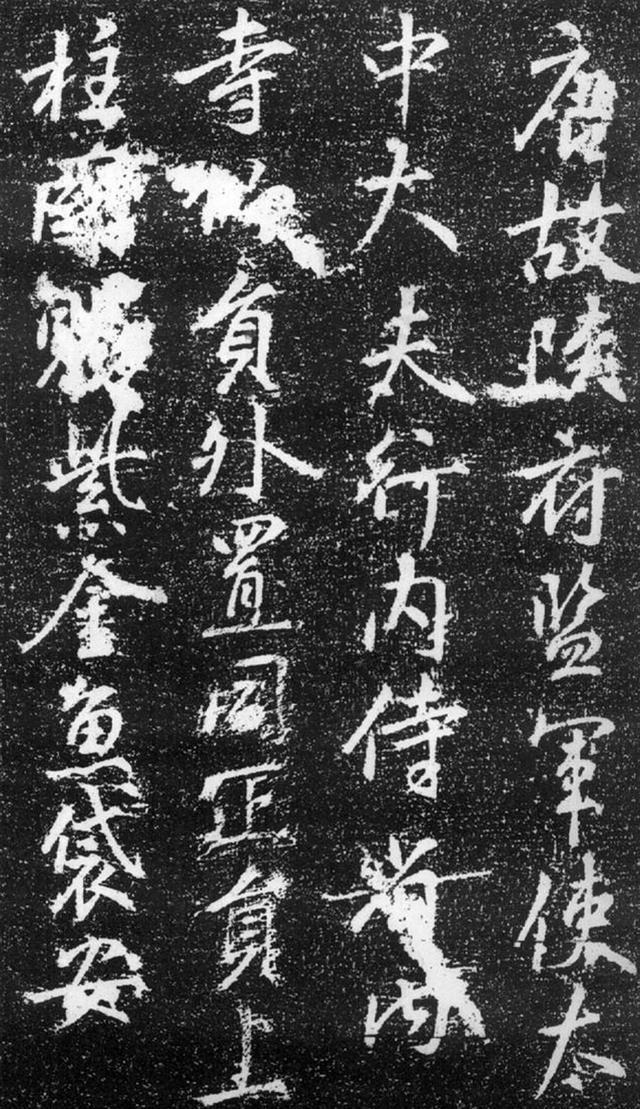 唐故府監軍使太
中大夫行内侍省内
寺伯員外置同正員上
柱國賜紫金魚袋安